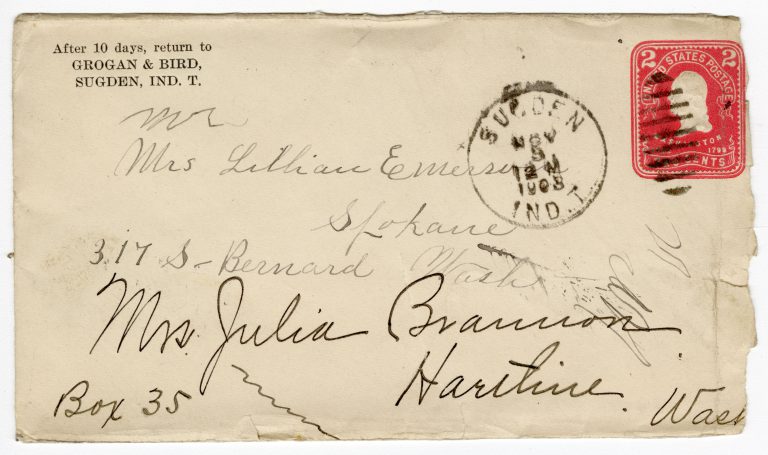 After 10 days, return to
GROGAN & BIRD,
SUGDEN, IND. T.
2 UNITED STATES POSTAGE 2
1799
CENTS
SUGDEN
NOV
5
12 M
1903
IND. T.
Mrs Lillian Emerson
Spokane
317 S- Bernard Wash
Mrs. Julia Brannon
Hartline.
Box 35
Wash